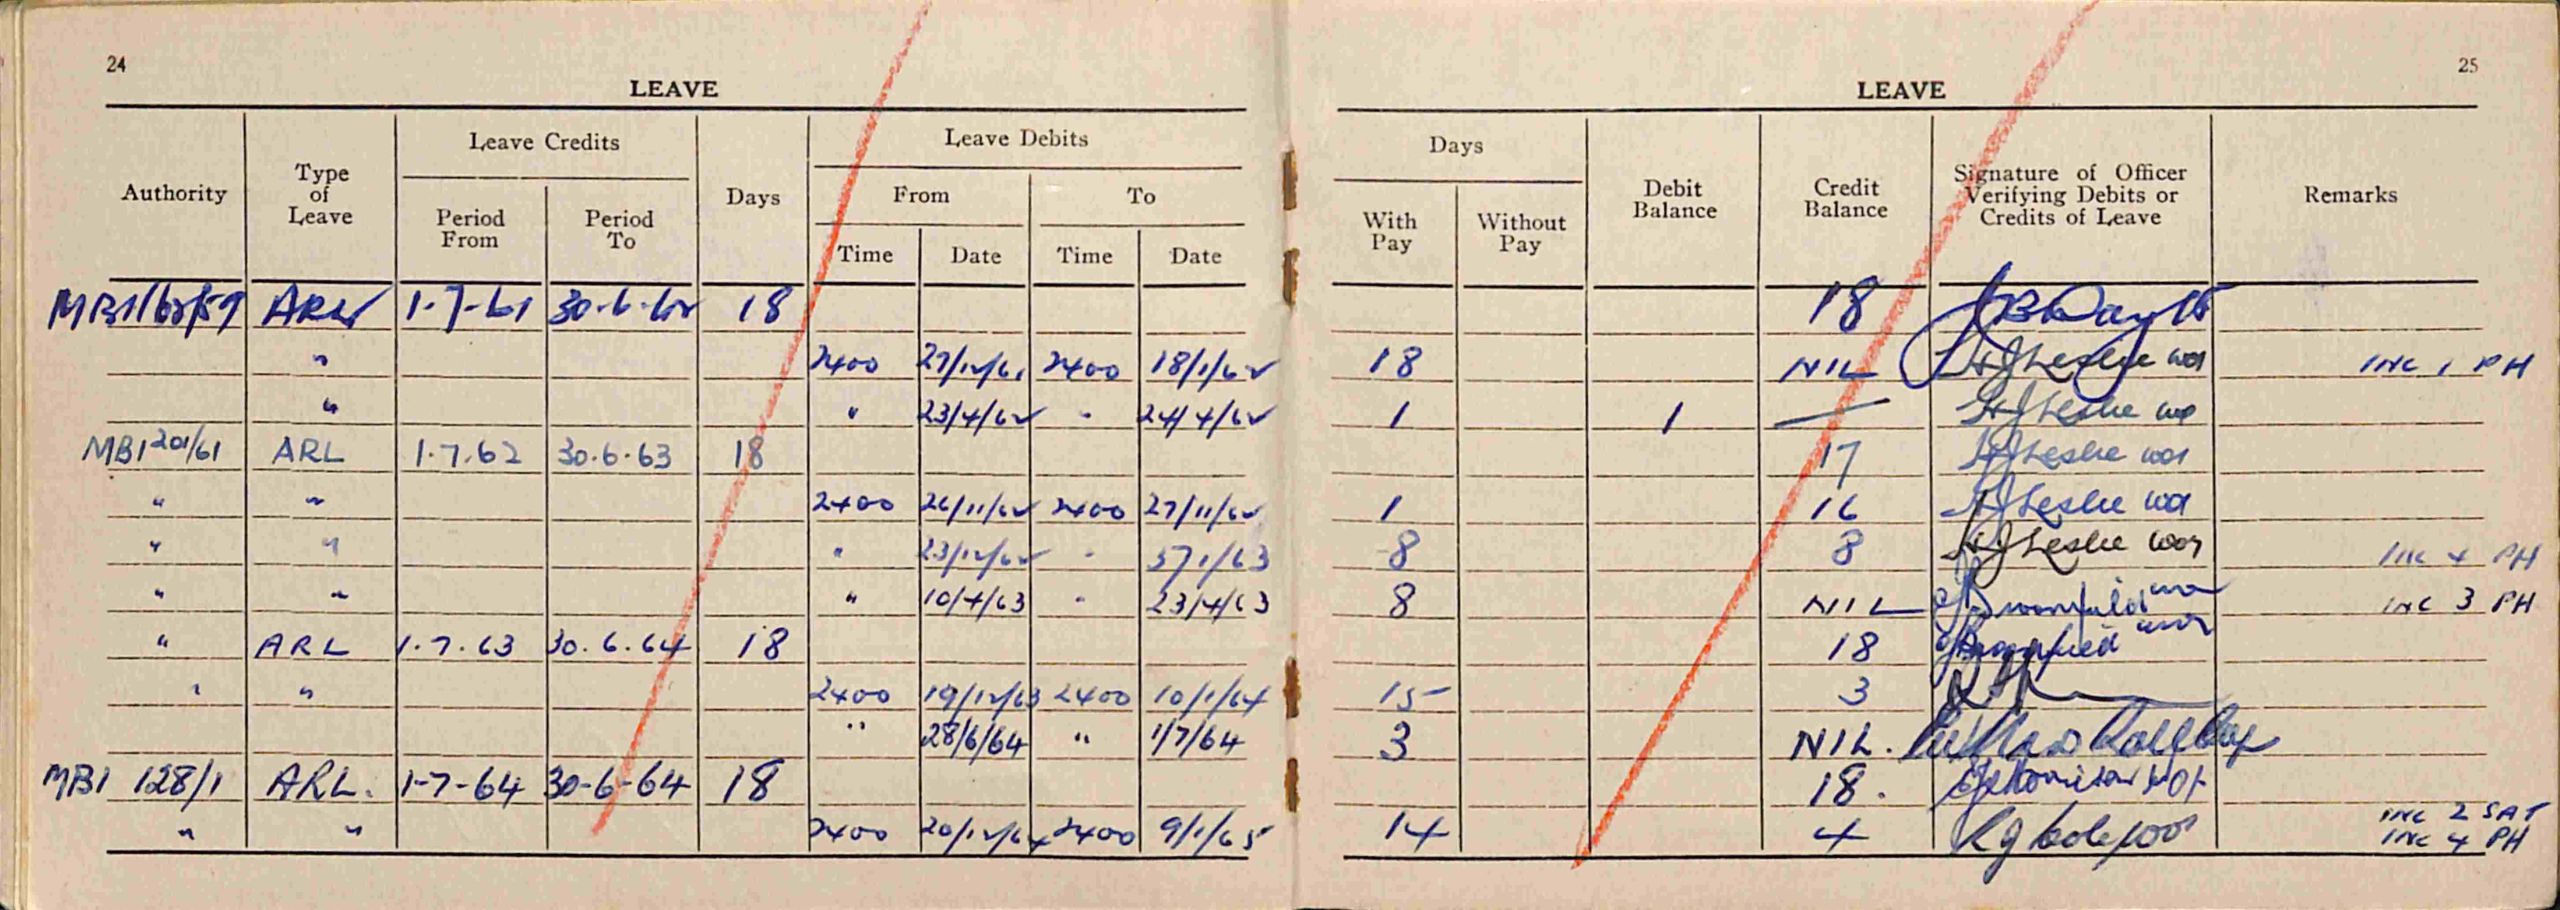 24
LEAVE
Authority Type of Leave Leave Credits Days Leave Debits
Period From Period To From To
Time Date Time Date
25
LEAVE
Days Debit Balance Credit Balance Signature of Officer Verifying Debits or Credits of Leave Remarks
With Pay Without Pay
ARL 1-7-61 30-6-62 18 18
" 2400 27/12/61 2400 18/1/62 18 NIL HJLeslie INC 1 PH
" " 23/4/62 " 24/4/62 1 1 — HJLeslie
MB1 201/61 ARL 1.7.62 30.6.63 18 17 HJLeslie
" " 2400 26/11/62 2400 27/11/62 1 16 HJLeslie
" " " 23/12/62 " 1/63 8 8 HJLeslie INC 4 PH
" " " 10/4/63 " 23/4/63 8 NIL INC 3 PH
" ARL 1.7.63 30.6.64 18 18
" " 2400 19/12/63 2400 10/1/64 15 3
" 28/6/64 " 1/7/64 3 NIL.
MB1 128/1 ARL. 1-7-64 30-6-64 18 18.
" " 2400 20/12/64 2400 9/1/65 14 4 INC 2 SAT
INC 4 PH